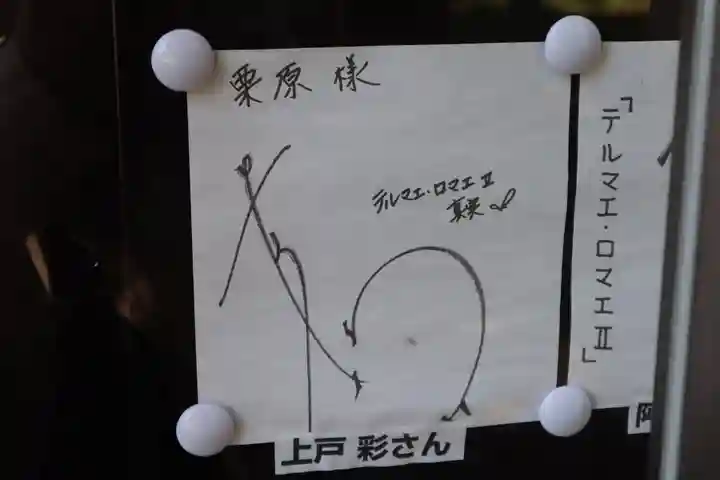 栗原 様
テルマエ・ロマエⅡ
真実
上戸 彩さん
「テルマエ・ロマエⅡ」